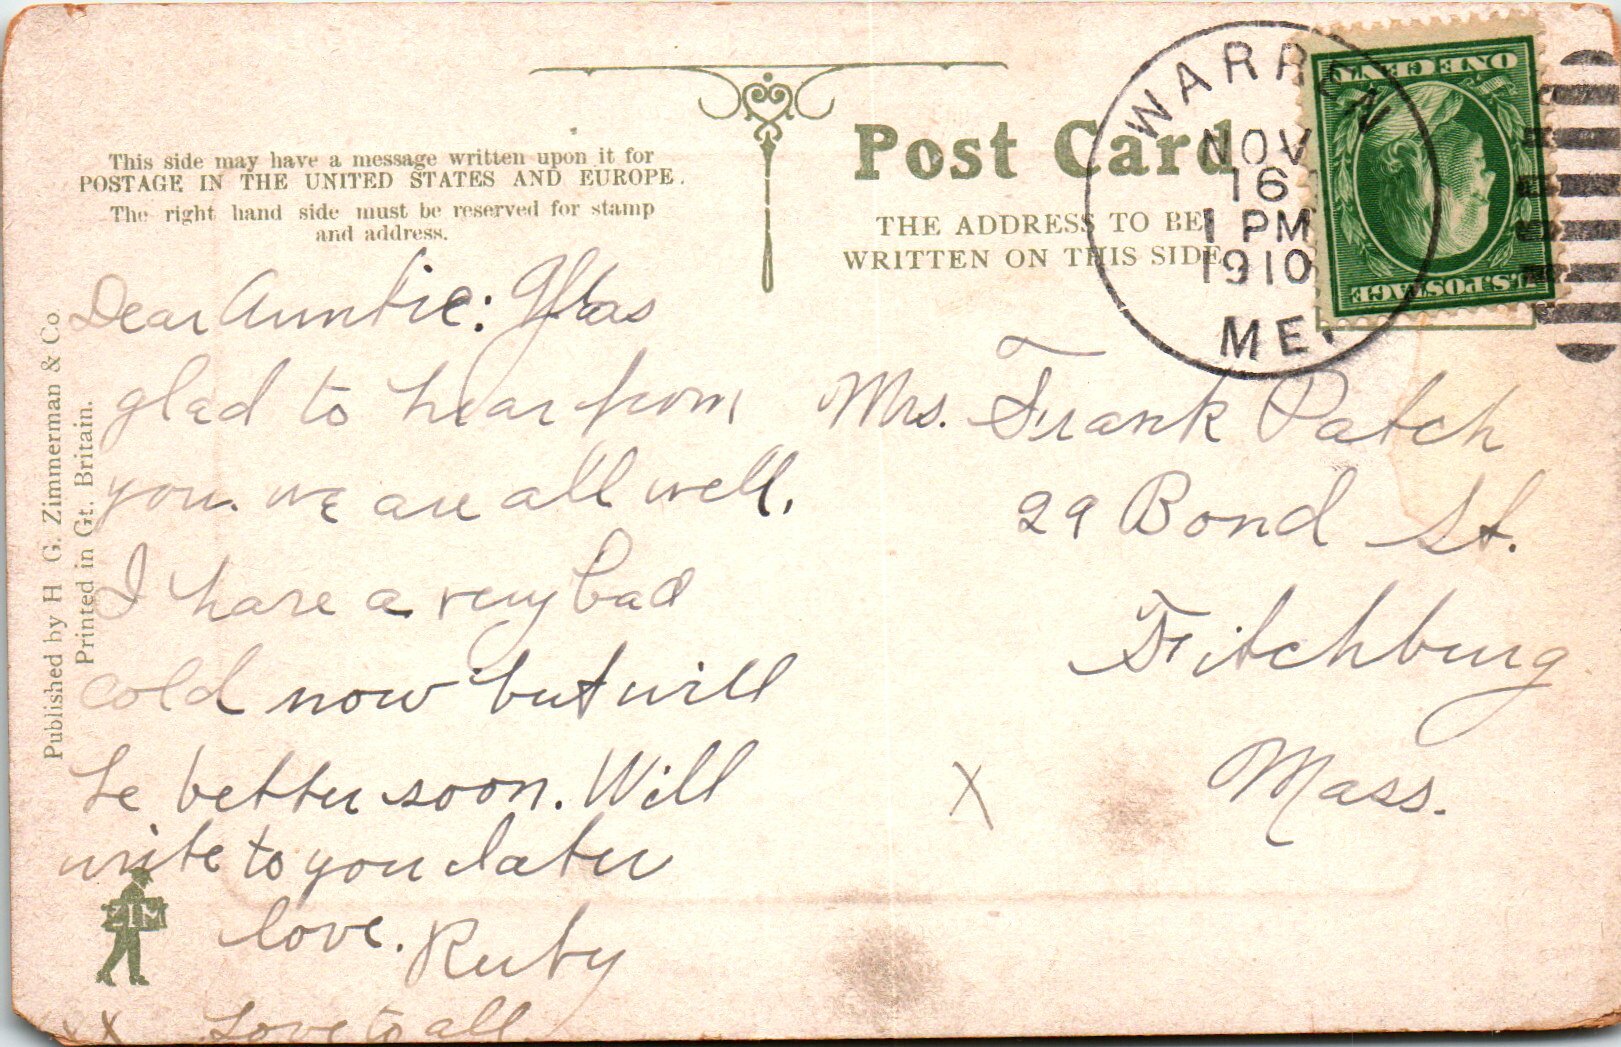 This side may have a message written upon it for
POSTAGE IN THE UNITED STATES AND EUROPE.
The right hand side must be reserved for stamp
and address.
Post Card
THE ADDRESS TO BE
WRITTEN ON THIS SIDE
WARREN
NOV
16
1 PM
1910
ME.
U.S. POSTAGE
ONE CENT
Published by H G. Zimmerman & Co.
Printed in Gt. Britain.
Dear Auntie: Was
glad to hear from
you. we are all well.
I have a very bad
cold now but will
be better soon. Will
write to you later
love. Ruby
xx Love to all.
ZIM
Mrs. Frank Patch
29 Bond St.
Fitchburg
Mass.
X